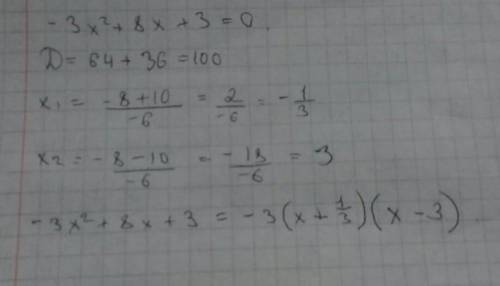 -3x² + 8x + 3 = 0.
D = 64 + 36 = 100
x₁ = (-8 + 10)/(-6) = 2/(-6) = -1/3
x₂ = (-8 - 10)/(-6) = (-18)/(-6) = 3
-3x² + 8x + 3 = -3(x + 1/3)(x - 3)